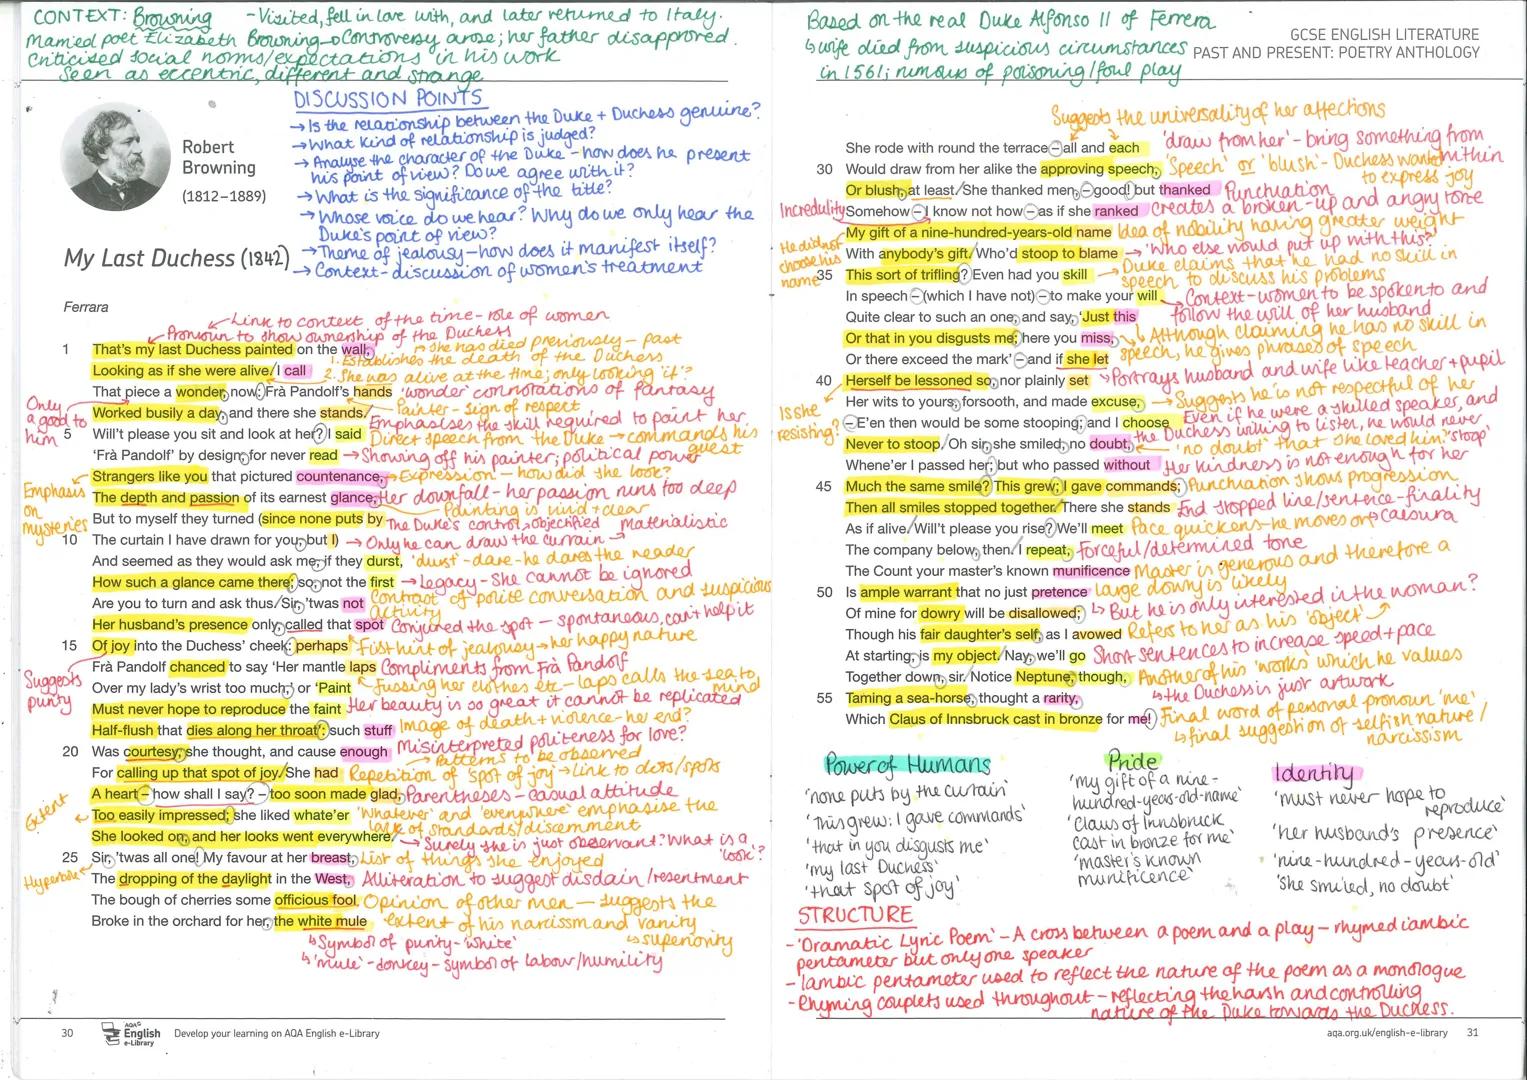 CONTEXT: Browning - Visited, fell in love with, and later returned to Italy.
Married poet Elizabeth Browning → Controversy arose; her father disapproved.
Criticised social norms/expectations in his work
Seen as eccentric, different and strange
DISCUSSION POINTS
→ Is the relationship between the Duke + Duchess genuine?
→ What kind of relationship is judged?
→ Analyse the character of the Duke - how does he present
his point of view? Do we agree with it?
→ What is the significance of the title?
→ Whose voice do we hear? Why do we only hear the
Duke's point of view?
→ Theme of jealousy - how does it manifest itself?
→ Context - discussion of women's treatment
Robert
Browning
(1812–1889)
My Last Duchess (1842)
Ferrara
Link to context of the time - role of women
Pronoun to show ownership of the Duchess
1 That's my last Duchess painted on the wall,
She has died previously - past
1. Establishes the death of the Duchess
Looking as if she were alive. I call
2. She was alive at the time; only looking 'if'?
That piece a wonder, now: Frà Pandolf's hands 'wonder' connotations of fantasy
Only
a good to
him
Painter - sign of respect
Worked busily a day, and there she stands.
Emphasises the skill required to paint her
5 Will't please you sit and look at her? I said Direct speech from the Duke → commands his
guest
'Frà Pandolf' by design, for never read → Showing off his painter; political power
Strangers like you that pictured countenance, → Expression - how did she look?
Emphasis
on
mysteries
The depth and passion of its earnest glance, Her downfall - her passion runs too deep
Painting is vivid + clear
But to myself they turned (since none puts by The Duke's control, objectified materialistic
10 The curtain I have drawn for you, but I) → Only he can draw the curtain
And seemed as they would ask me, if they durst, 'durst' - dare - he dares the reader
How such a glance came there; so, not the first → Legacy - She cannot be ignored
Contrast of polite conversation and suspicious
activity
Are you to turn and ask thus. Sir, 'twas not
Her husband's presence only, called that spot Conjured the spot - spontaneous, can't help it
15 Of joy into the Duchess' cheek: perhaps First hint of jealousy → her happy nature
Suggests
purity
Frà Pandolf chanced to say 'Her mantle laps Compliments from Frà Pandolf
Over my lady's wrist too much,' or 'Paint Fussing her clothes etc - laps calls the sea to
mind
Must never hope to reproduce the faint Her beauty is so great it cannot be replicated
Half-flush that dies along her throat': such stuff Image of death + violence - her end?
20 Was courtesy, she thought, and cause enough Misinterpreted politeness for love?
→ Patterns to be observed
For calling up that spot of joy. She had Repetition of 'spot of joy' → link to dots/spots
A heart – how shall I say? – too soon made glad, Parentheses - casual attitude
Extent
Too easily impressed; she liked whate'er 'Whatever' and 'everywhere' emphasise the
lack of standards/discernment
She looked on, and her looks went everywhere. → Surely she is just observant? What is a
'look'?
25 Sir, 'twas all one! My favour at her breast, List of things she enjoyed
Hyperbole
The dropping of the daylight in the West, Alliteration to suggest disdain/resentment
The bough of cherries some officious fool Opinion of other men - suggests the
Broke in the orchard for her, the white mule extent of his narcissism and vanity
↳ superiority
↳ Symbol of purity - 'white'
↳ 'mule' - donkey - symbol of labour/humility
30
AQA
English
e-Library
Develop your learning on AQA English e-Library
Based on the real Duke Alfonso II of Ferrera
↳ wife died from suspicious circumstances
in 1561; rumours of poisoning/foul play
GCSE ENGLISH LITERATURE
PAST AND PRESENT: POETRY ANTHOLOGY
Suggests the universality of her affections
She rode with round the terrace – all and each 'draw from her' - bring something from
within
30 Would draw from her alike the approving speech, 'Speech' or 'blush' - Duchess wanted
to express joy
Or blush, at least. She thanked men, – good! but thanked Punctuation
Incredulity
Somehow – I know not how – as if she ranked creates a broken-up and angry tone
He did not
choose his
name
My gift of a nine-hundred-years-old name Idea of nobility having greater weight
With anybody's gift. Who'd stoop to blame → 'Who else would put up with this?'
35 This sort of trifling? Even had you skill → Duke claims that he had no skill in
speech to discuss his problems
In speech – (which I have not) – to make your will Context - women to be spoken to and
Quite clear to such an one, and say, 'Just this follow the will of her husband
Or that in you disgusts me; here you miss, Although claiming he has no skill in
Or there exceed the mark' – and if she let speech, he gives phrases of speech
40 Herself be lessoned so, nor plainly set → Portrays husband and wife like teacher + pupil
Is she
resisting?
Her wits to yours, forsooth, and made excuse, → Suggests he is not respectful of her
– E'en then would be some stooping; and I choose Even if he were a skilled speaker, and
Never to stoop. Oh sir, she smiled, no doubt, the Duchess willing to listen, he would never
'stoop'
'no doubt' that she loved him?
Whene'er I passed her; but who passed without Her kindness is not enough for her
45 Much the same smile? This grew; I gave commands; Punctuation shows progression
Then all smiles stopped together. There she stands End stopped line/sentence - finality
As if alive. Will't please you rise? We'll meet Pace quickens - he moves on → Caesura
The company below, then. I repeat, Forceful/determined tone
The Count your master's known munificence Master is generous and therefore a
50 Is ample warrant that no just pretence large dowry is likely
Of mine for dowry will be disallowed; ↳ But he is only interested in the woman?
Though his fair daughter's self, as I avowed Refers to her as his 'object'
At starting, is my object. Nay, we'll go Short sentences to increase speed + pace
Together down, sir. Notice Neptune, though, Another of his 'works' which he values
55 Taming a sea-horse, thought a rarity, ↳ the Duchess is just artwork
Which Claus of Innsbruck cast in bronze for me! Final word of personal pronoun 'me'
↳ final suggestion of selfish nature/
narcissism
Power of Humans
'none puts by the curtain'
'This grew: I gave commands'
'that in you disgusts me'
'my last Duchess'
'that spot of joy'
Pride
'my gift of a nine-
hundred-years-old-name'
'Claus of Innsbruck
cast in bronze for me'
'master's known
munificence'
Identity
'must never hope to
reproduce'
'her husband's presence'
'nine-hundred-years-old'
'she smiled, no doubt'
STRUCTURE
- 'Dramatic Lyric Poem' - A cross between a poem and a play - rhymed iambic
pentameter but only one speaker
- Iambic pentameter used to reflect the nature of the poem as a monologue
- Rhyming couplets used throughout - reflecting the harsh and controlling
nature of the Duke towards the Duchess.
aqa.org.uk/english-e-library 31